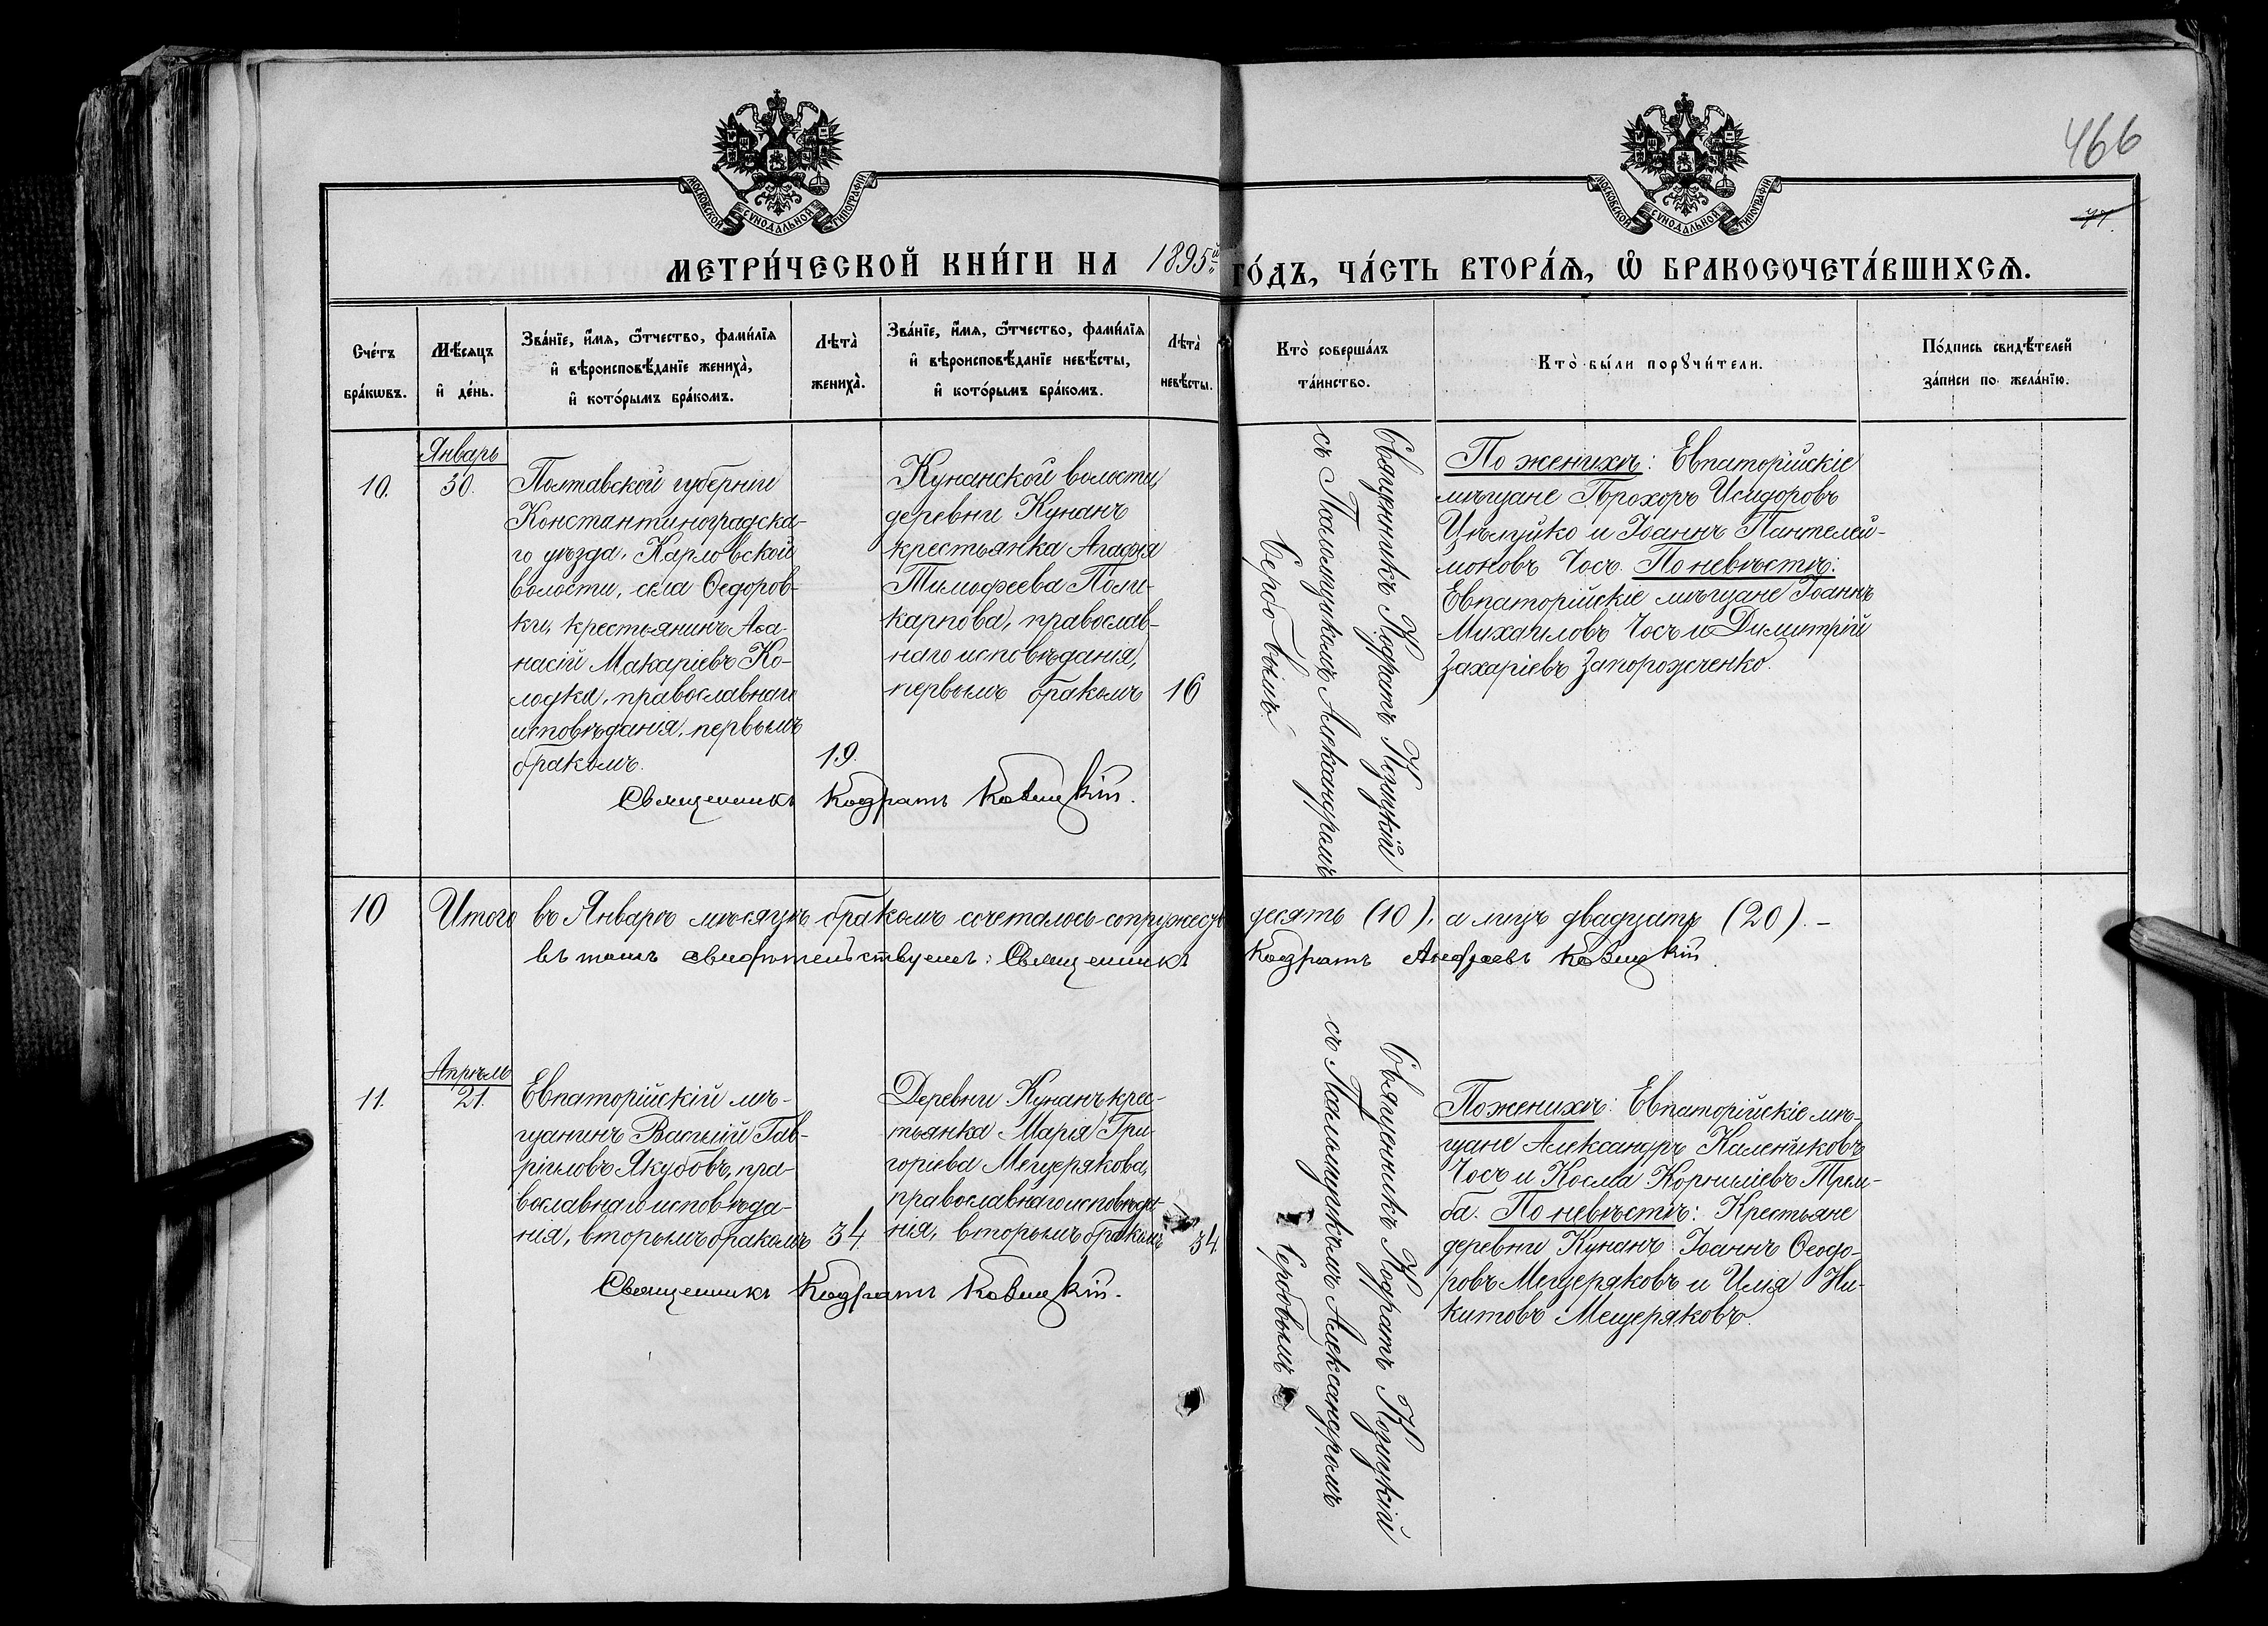 466
77.
МОСКОВСКОЙ СѴНОДАЛЬНОЙ ТИПОГРАФІИ
МОСКОВСКОЙ СѴНОДАЛЬНОЙ ТИПОГРАФІИ
МЕТРИ́ЧЕСКОЙ КНИ́ГИ НА 1895й ГО́ДЪ, ЧА́СТЬ ВТОРА́Ѧ, Ѽ БРАКОСОЧЕТА́ВШИХСѦ.
Сче́тъ
бра́кѡвъ.
Мѣ́сяцъ
и҆ де́нь.
Зва́нїе, и҆́мѧ, ѻ҆́тчество, фами́лїѧ
и҆ вѣроисповѣ́данїе жениха̀,
и҆ кото́рымъ бра́комъ.
Лѣта̀
жениха̀.
Зва́нїе, и҆́мѧ, ѻ҆́тчество, фами́лїѧ
и҆ вѣроисповѣ́данїе невѣ́сты,
и҆ кото́рымъ бра́комъ.
Лѣта̀
невѣ́сты.
Кто̀ соверша́лъ
та́инство.
Кто̀ бы́ли порꙋчи́тели.
По́дпись свидѣ́телей
за́писи по жела́нїю.
10.
Январь
30.
Полтавской губерніи
Константиноградска-
го уѣзда, Карловской
волости, села Ѳедоров-
ки, крестьянинъ Аѳа-
насій Макаріевъ Ко-
лодка, православнаго
исповѣданія, первымъ
бракомъ.
19.
Кунанской волости,
деревни Кунанъ
крестьянка Агафія
Тимофеева Поли-
карпова, православ-
наго исповѣданія,
первымъ бракомъ
16
Священникъ Кодратъ Козицкій
съ Псаломщикомъ Александромъ
Сербовымъ.
По женихѣ: Евпаторійскіе
мѣщане Прохоръ Исидоровъ
Цѣлуйко и Іоаннъ Пантелей-
моновъ Чосъ. По невѣстѣ:
Евпаторійскіе мѣщане Іоаннъ
Михаиловъ Чосъ и Димитрій
Захаріевъ Запорожченко.
Священникъ Кодратъ Козицкій.
10 Итого въ Январѣ мѣсяцѣ бракомъ сочеталось супружествъ десять (10), а лицъ двадцать (20). –
въ томъ свидѣтельствуемъ: Священникъ Кодратъ Андреевъ Козицкій.
11.
Апрѣль
21.
Евпаторійскій мѣ-
щанинъ Василій Гав-
ріиловъ Якубовъ, пра-
вославнаго исповѣда-
нія, вторымъ бракомъ
34.
Деревни Кунанъ крес-
тьянка Марія Гри-
горіева Мещерякова,
православнаго исповѣда-
нія, вторымъ бракомъ
34.
Священникъ Кодратъ Козицкій
съ Псаломщикомъ Александромъ
Сербовымъ
По женихѣ: Евпаторійскіе мѣ-
щане Александръ Калениковъ
Чосъ и Косма Корниліевъ Трем-
ба. По невѣстѣ: Крестьяне
деревни Кунанъ Іоаннъ Ѳеодо-
ровъ Мещеряковъ и Илія Ни-
китовъ Мещеряковъ.
Священникъ Кодратъ Козицкій.